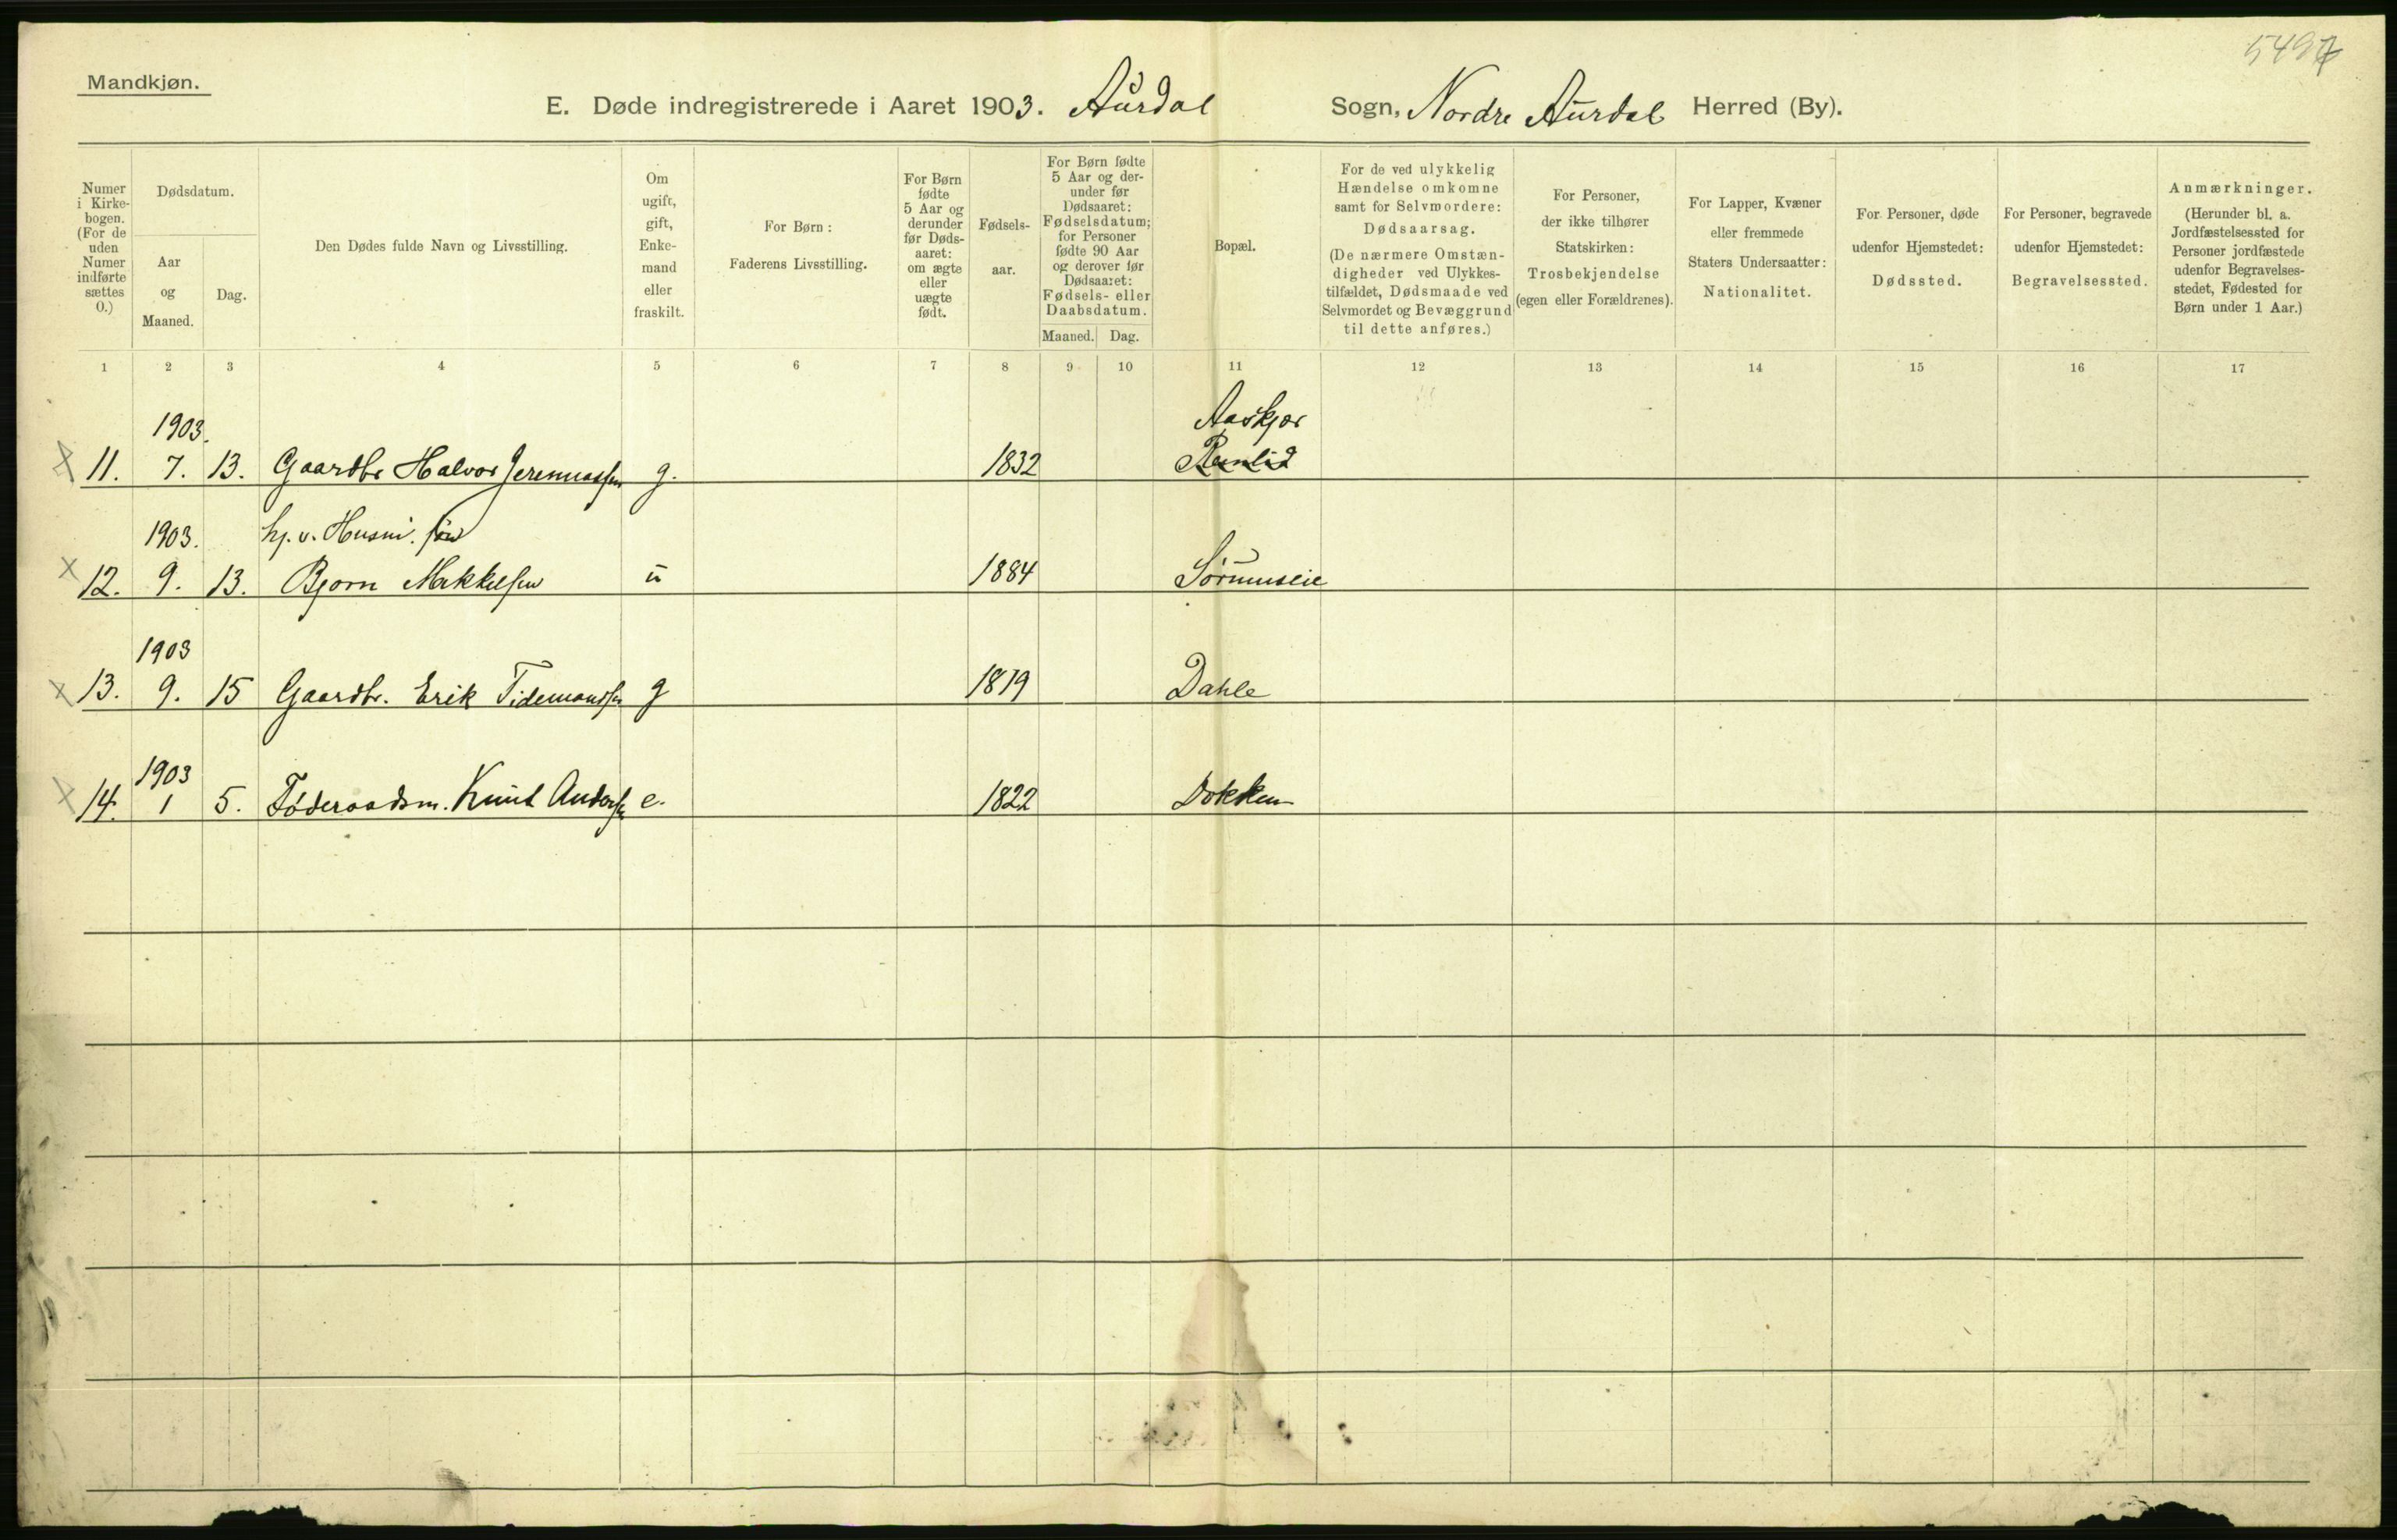 5497
Mandkjøn.
E. Døde indregistrerede i Aaret 1903. Aurdal Sogn, Nordre Aurdal Herred (By).
Numer
i Kirke-
bogen.
(For de
uden
Numer
indførte
sættes
0.)
Dødsdatum.
Aar
og
Maaned.
Dag.
Den Dødes fulde Navn og Livsstilling.
Om
ugift,
gift,
Enke-
mand
eller
fraskilt.
For Børn:
Faderens Livsstilling.
For Børn
fødte
5 Aar og
derunder
før Døds-
aaret:
om ægte
eller
uægte
født.
Fødsels-
aar.
For Børn fødte
5 Aar og der-
under før
Dødsaaret:
Fødselsdatum;
for Personer
fødte 90 Aar
og derover før
Dødsaaret:
Fødsels- eller
Daabsdatum.
Maaned. Dag.
Bopæl.
For de ved ulykkelig
Hændelse omkomne
samt for Selvmordere:
Dødsaarsag.
(De nærmere Omstæn-
digheder ved Ulykkes-
tilfældet, Dødsmaade ved
Selvmordet og Bevæggrund
til dette anføres.)
For Personer,
der ikke tilhører
Statskirken:
Trosbekjendelse
(egen eller Forældrenes).
For Lapper, Kvæner
eller fremmede
Staters Undersaatter:
Nationalitet.
For Personer, døde
udenfor Hjemstedet:
Dødssted.
For Personer, begravede
udenfor Hjemstedet:
Begravelsessted.
Anmærkninger.
(Herunder bl. a.
Jordfæstelsessted for
Personer jordfæstede
udenfor Begravelses-
stedet, Fødested for
Børn under 1 Aar.)
1 2 3 4 5 6 7 8 9 10 11 12 13 14 15 16 17
1903. Aaskjær
11. 7. 13. Gaardbr Halvor Jeremiassen g. 1832
1903. hj. v. Husm. søn
12. 9. 13. Bjørn Mikkelsen u 1884 Sørumseie
1903
13. 9. 15 Gaardbr. Erik Tidemandsen g 1819 Dahle
1903
14. 1 5. Føderaadsm. Knut Andersen e. 1822 Dokken